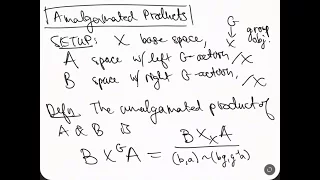 Amalgamated Products
SETUP: X base space, G ↓ X group obj.
A space w/ left G-action /X
B space w/ right G-action, /X
Defn The amalgamated product of
A & B is
B ×^G A = B ×_X A / (b,a)~(bg,g⁻¹a)